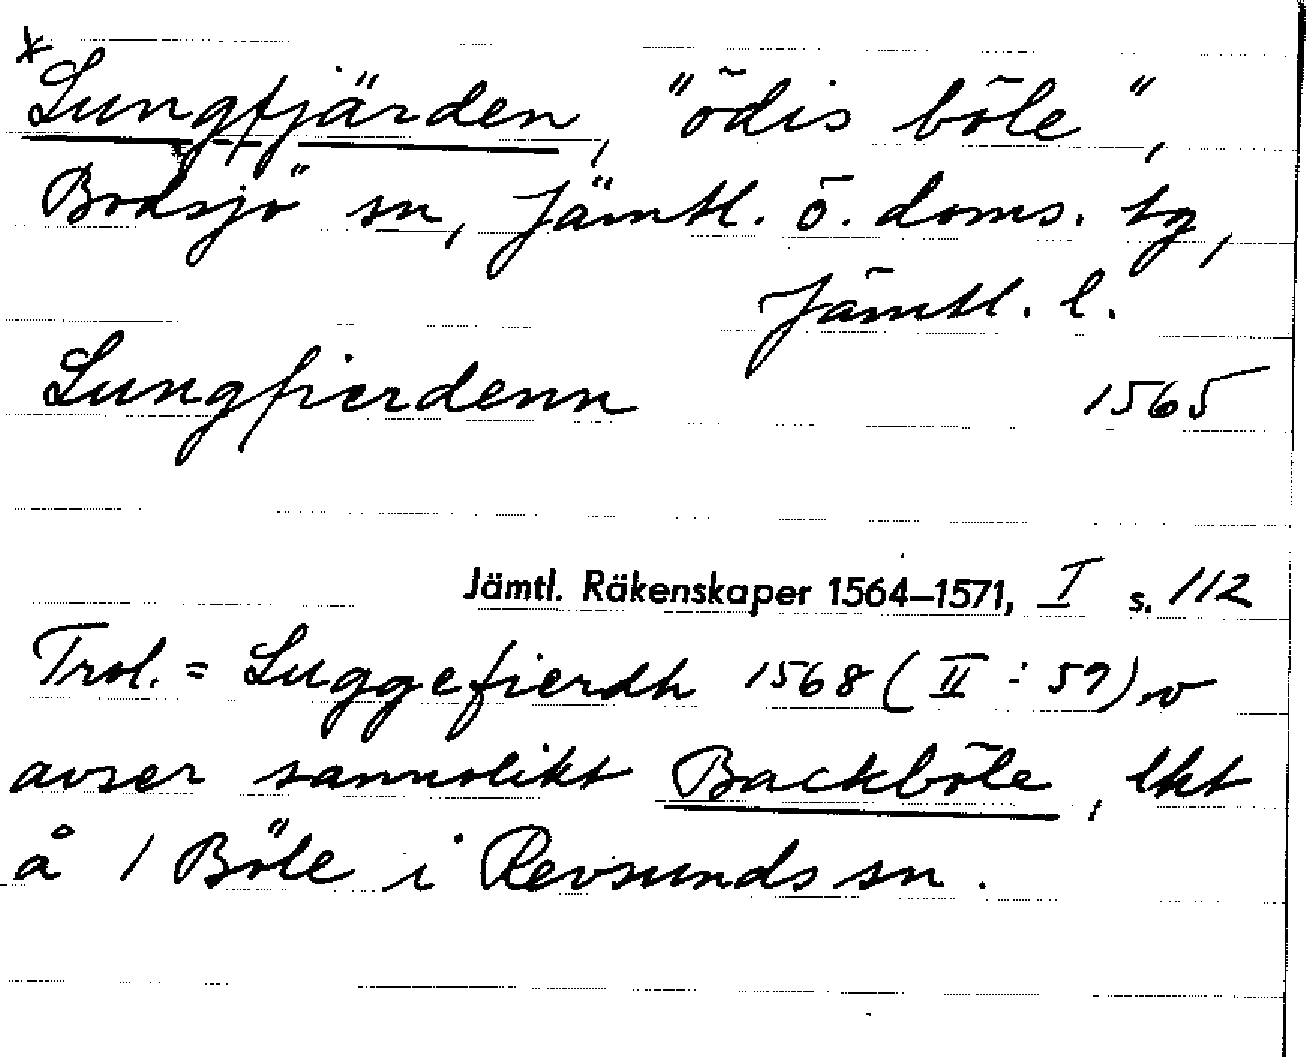 *Lungfjärden, "ödis böle",
Bodsjö sn, Jämtl. ö. doms. tg,
Jämtl. l.
Lungfierdenn 1565
Jämtl. Räkenskaper 1564–1571, I s. 112
Trol. = Luggefierdh 1568 (II : 59) o
avser sannolikt Backböle, lkt
å 1 Böle i Revsunds sn.